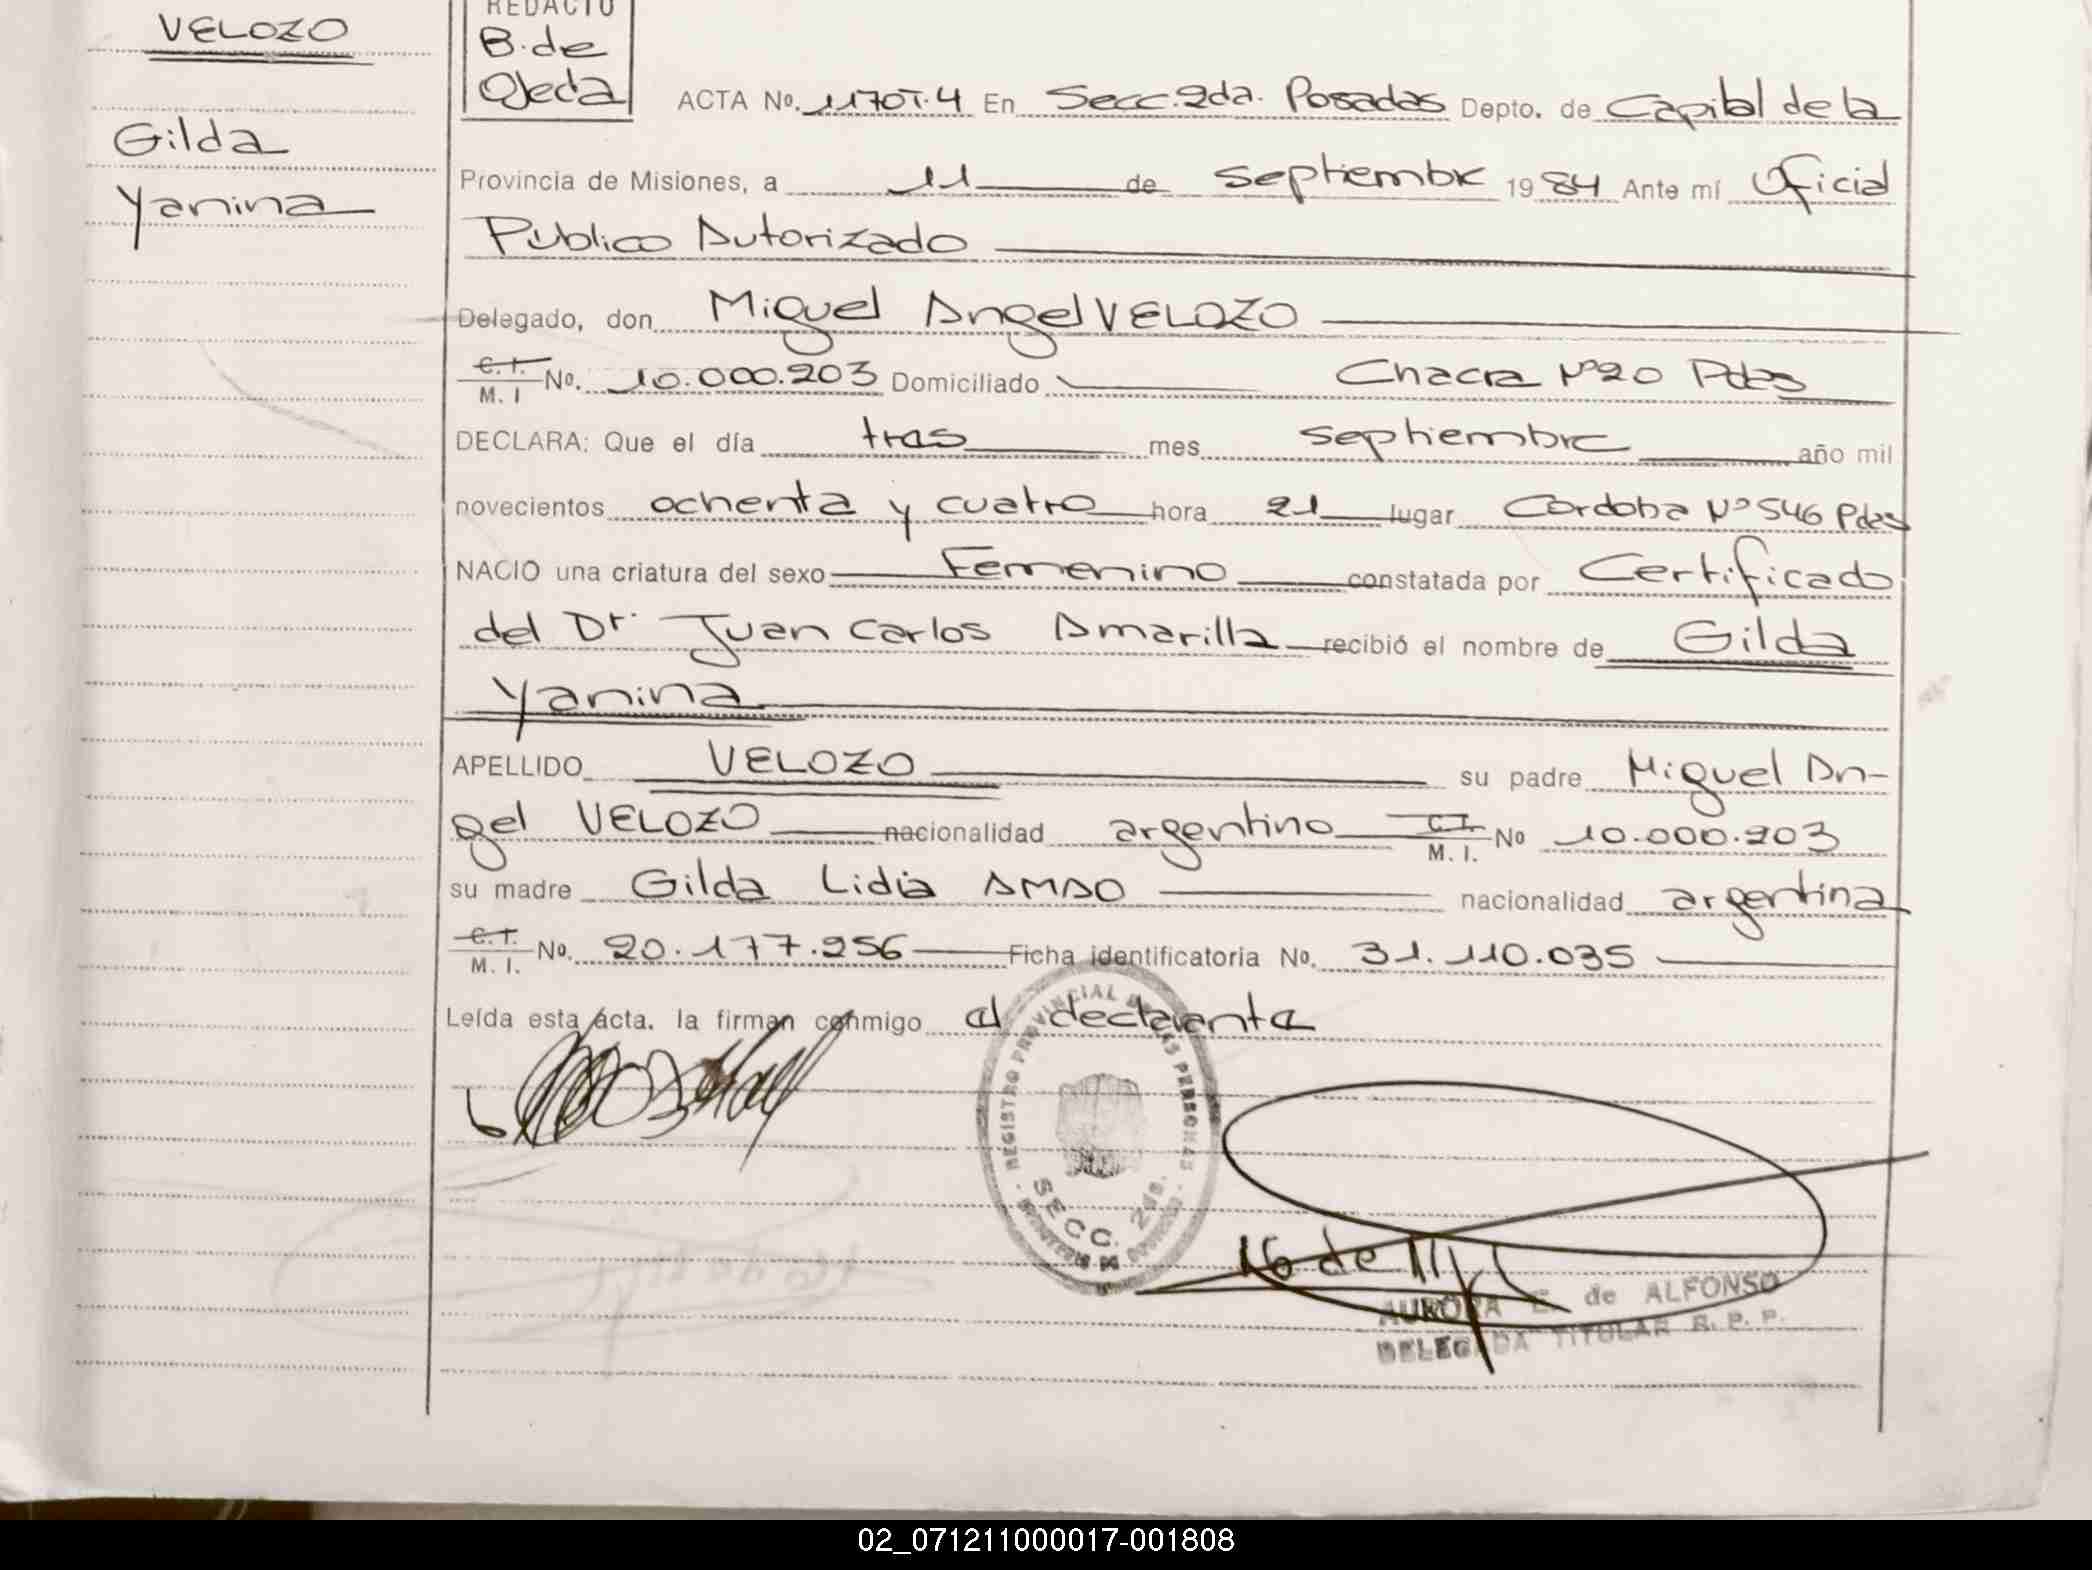 VELOZO
Gilda
Yanina
REDACTO
B. de
Ojeda
ACTA No. 1170T.4 En Secc. 2da. Posadas Depto. de Capital de la
Provincia de Misiones, a 11 de septiembre 1984 Ante mí Oficial
Público Autorizado
Delegado, don Miguel Angel VELOZO
C.I. M.I No. 10.000.203 Domiciliado Chacra Nº 20 Pdas
DECLARA: Que el día tres mes septiembre año mil
novecientos ochenta y cuatro hora 21 lugar Cordoba Nº 546 Pdas
NACIO una criatura del sexo Femenino constatada por Certificado
del Dr. Juan Carlos Amarilla recibió el nombre de Gilda
Yanina
APELLIDO VELOZO su padre Miguel An-
gel VELOZO nacionalidad argentino C.I. M.I. No 10.000.203
su madre Gilda Lidia AMAO nacionalidad argentina
C.I. M.I. No. 20.177.256 Ficha identificatoria No. 31.110.035
Leída esta acta, la firman conmigo el declarante
REGISTRO PROVINCIAL DE LAS PERSONAS
SECC. 2da.
MINISTERIO DE GOBIERNO
AURORA E. de ALFONSO
DELEGADA TITULAR R. P. P.
02_071211000017-001808